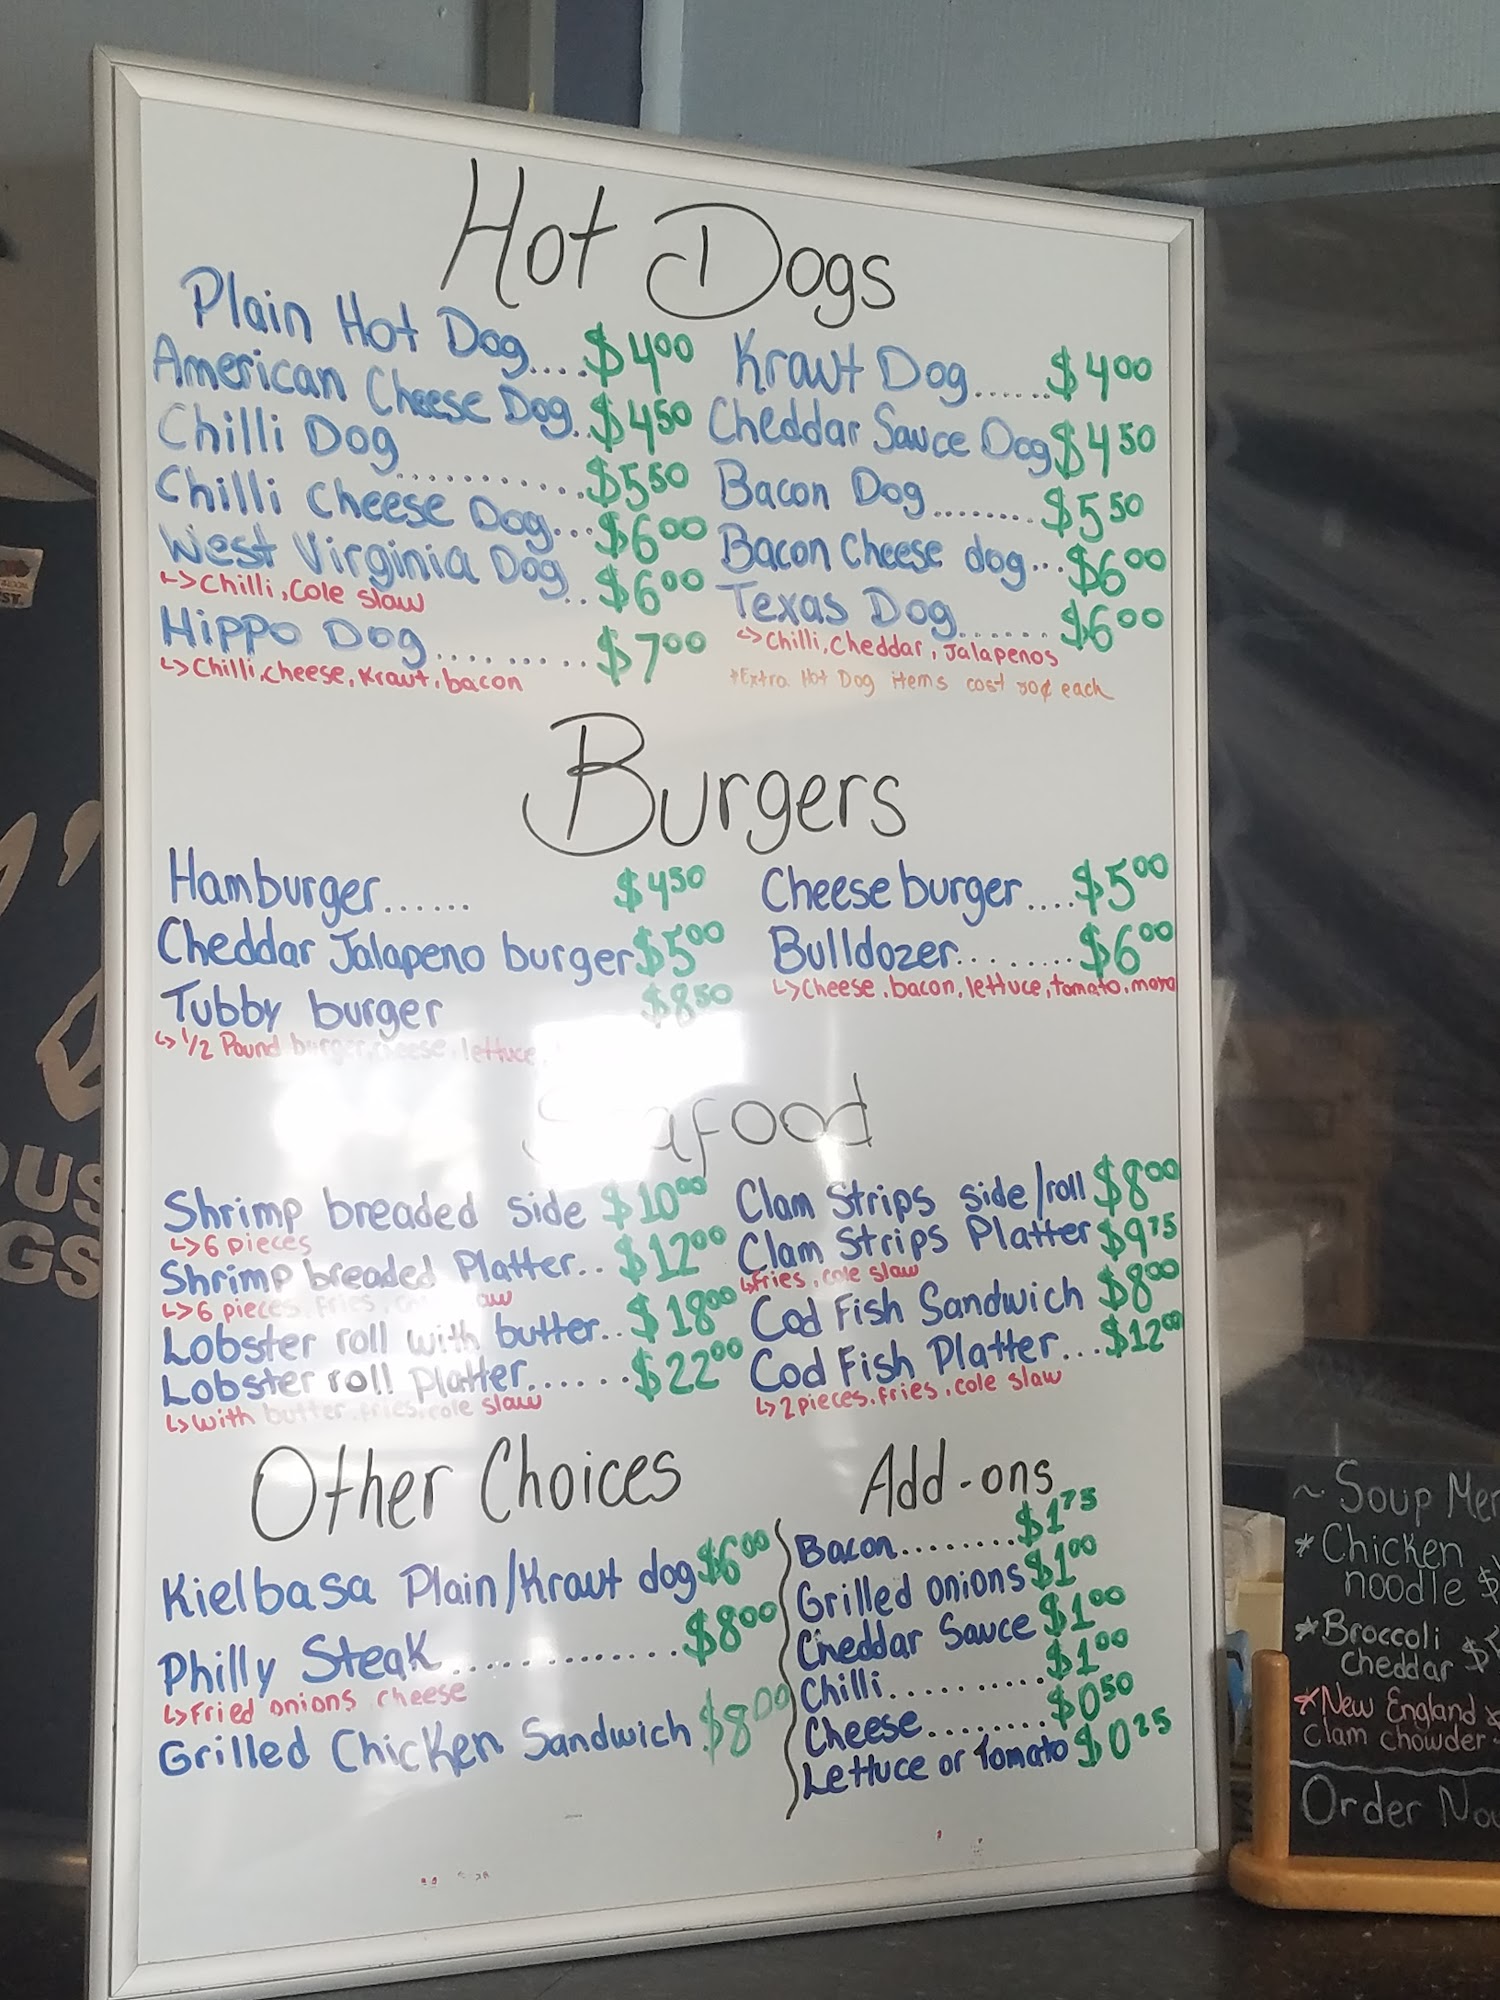 Hot Dogs
Plain Hot Dog....$4.00
American Cheese Dog..$4.50
Chilli Dog............$5.50
Chilli Cheese Dog...$6.00
West Virginia Dog..$6.00
↳Chilli, Cole slaw
Hippo Dog.........$7.00
↳Chilli, cheese, Kraut, bacon
Kraut Dog......$4.00
Cheddar Sauce Dog $4.50
Bacon Dog........$5.50
Bacon Cheese dog...$6.00
Texas Dog......$6.00
↳Chilli, Cheddar, Jalapenos
*Extra Hot Dog items cost 50¢ each
Burgers
Hamburger...... $4.50
Cheddar Jalapeno burger $5.00
Tubby burger $8.50
↳1/2 Pound burger, cheese, lettuce,
Cheeseburger....$5.00
Bulldozer........$6.00
↳Cheese, bacon, lettuce, tomato, mayo
Seafood
Shrimp breaded side $10.00
↳6 pieces
Shrimp breaded Platter..$12.00
↳6 pieces, Fries,
Lobster roll with butter..$18.00
Lobster roll Platter......$22.00
↳with butter, fries, cole slaw
Clam Strips side/roll $8.00
Clam Strips Platter $9.75
↳Fries, cole slaw
Cod Fish Sandwich $8.00
Cod Fish Platter...$12.00
↳2 pieces, fries, cole slaw
Other Choices
Kielbasa Plain/Kraut dog $6.00
Philly Steak............$8.00
↳Fried onions cheese
Grilled Chicken Sandwich $8.00
Add-ons
Bacon........$1.75
Grilled onions $1.00
Cheddar Sauce $1.00
Chilli..........$1.00
Cheese........$0.50
Lettuce or Tomato $0.25
~ Soup
*Chicken
noodle $
*Broccoli
cheddar $
*New England
Clam chowder
Order